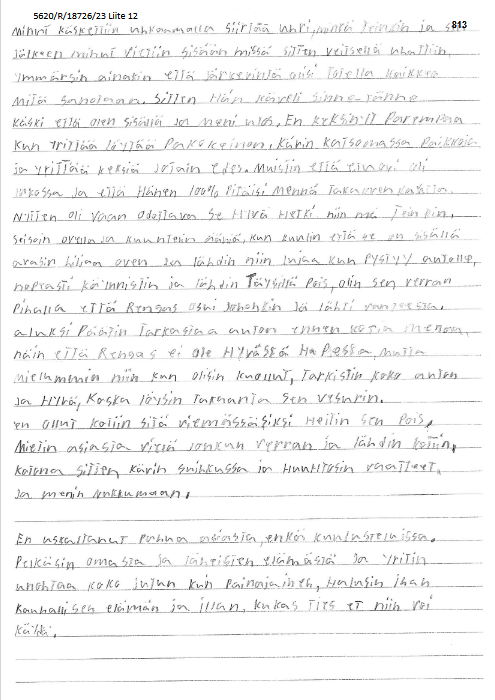 5620/R/18726/23 Liite 12
813
minut käskettiin uhkaamalla siirtää uhri, minkä teinkin ja sen
jälkeen minut vietiin sisään missä sitten veitsellä uhattiin,
ymmärsin ainakin että järkevintä olisi totella kaikkea
mitä sanotaan. Sitten Hän käveli sinne-tänne
käski että olen sisällä ja meni ulos. En keksinyt parempaa
kun yrittää löytää Pakokeinon. Kävin katsomassa paikkoja
ja yrittää keksiä jotain edes. Muistin että etuovi oli
lukossa ja että Hänen 100% pitäisi mennä takaoven kautta.
Nyt oli vaan odottava se Hyvä Hetki niin mä teinkin.
seisoin ovella ja kuuntelin ääniä, kun kuulin että se on sisällä
avasin hiljaa oven ja lähdin niin lujaa kun pystyy autolle,
nopeasti käynnistin ja lähdin Täysillä pois, olin sen verran
pihalla että Rengas osui johonkin ja lähti vanteesta.
aluksi Päätin tarkastaa auton ennen kotia menoa,
näin että Rengas ei ole Hyvässä Hapessa, mutta
mielummin niin kun olisin kuollut, Tarkistin koko auton
ja Hyvä, Koska löysin takaanta sen vesurin.
en ollut kotiin sitä viemässä siksi heitin sen pois.
Mietin asiasta vielä jonkun verran ja lähdin kotiin,
kotona sitten kävin suihkussa ja Huuhtosin vaatteet.
Ja menin nukkumaan.
En uskaltanut puhua asiasta, enkä kuulusteluissa.
Pelkäsin omasta ja läheisten elämästä Ja yritin
unohtaa koko jutun kun painajainen, Halusin ihan
Rauhallisen elämän ja illan, kukas ties et niin voi
käydä.